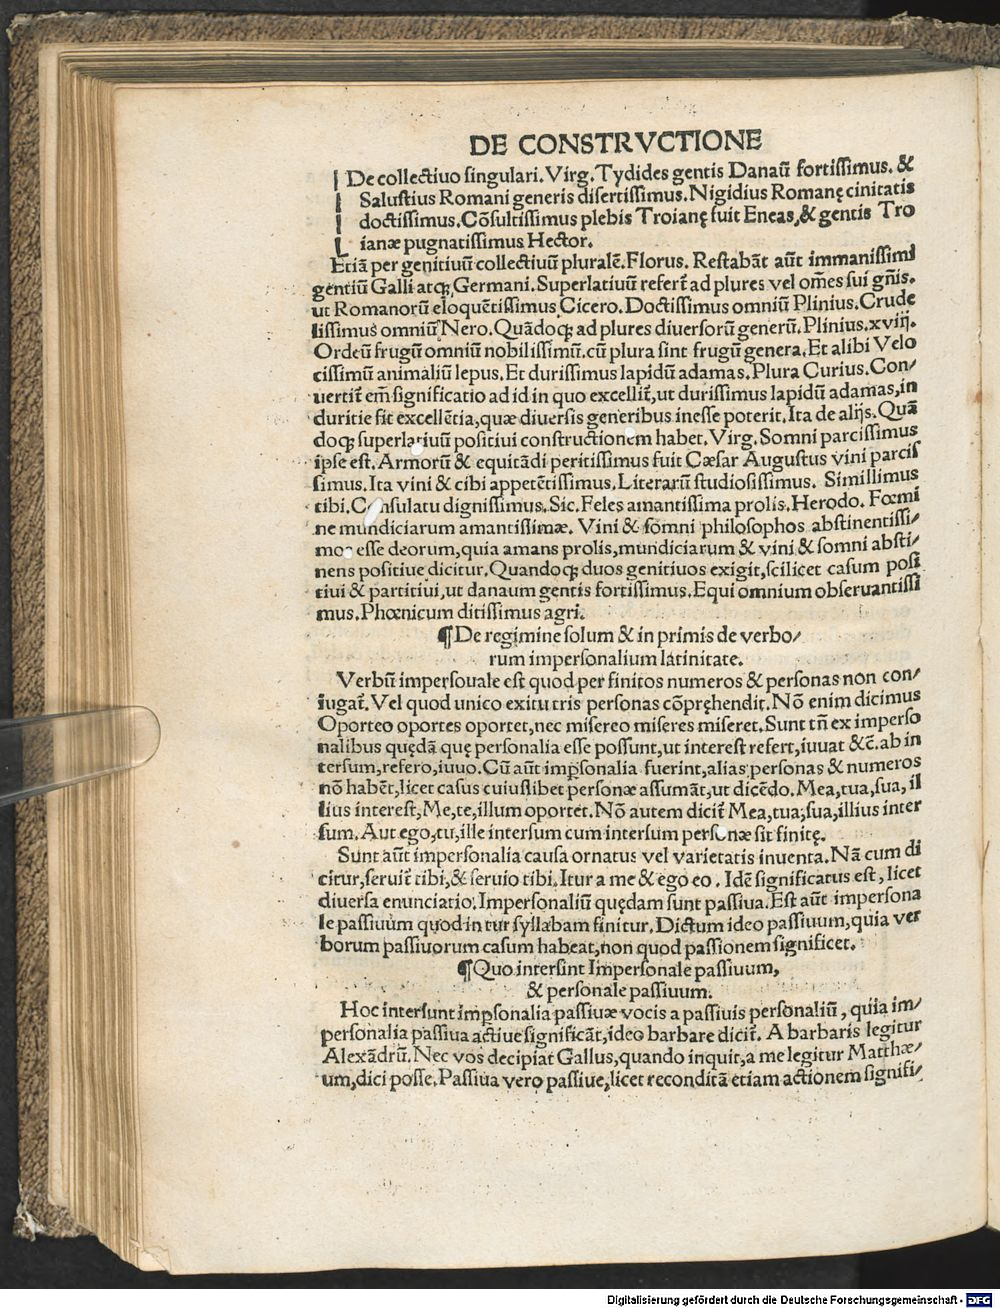 DE CONSTRVCTIONE
De collectiuo singulari. Virg. Tydides gentis Danaū fortissimus. &
Salustius Romani generis disertissimus. Nigidius Romanę ciuitatis
doctissimus. Cōsultissimus plebis Troianę fuit Eneas, & gentis Tro
ianæ pugnatissimus Hector.
Etiā per genitiuū collectiuū pluralē. Florus. Restabāt aūt immanissimi
gentiū Galli atqꝫ Germani. Superlatiuū refert̄ ad plures vel oēs sui gn̄is.
ut Romanorū eloquētissimus Cicero. Doctissimus omniū Plinius. Crude
lissimus omniū Nero. Quādoqꝫ ad plures diuersorū generū. Plinius. xviij.
Ordeū frugū omniū nobilissimū. cū plura sint frugū genera. Et alibi Velo
cissimū animaliū lepus. Et durissimus lapidū adamas. Plura Curius. Con⸗
uertit̄ em̄ significatio ad id in quo excellit̄, ut durissimus lapidū adamas, in
duritie fit excellētia, quæ diuersis generibus inesse poterit. Ita de alijs. Quā
doqꝫ superlatiuū positiui constructionem habet. Virg. Somni parcissimus
ipse est. Armorū & equitādi peritissimus fuit Cæsar Augustus vini parcis
simus. Ita vini & cibi appetētissimus. Literarū studiosissimus. Simillimus
tibi. Consulatu dignissimus. Sic. Feles amantissima prolis. Herodo. Fœmi
ne mundiciarum amantissimæ. Vini & somni philosophos abstinentissi⸗
mos esse deorum, quia amans prolis, mundiciarum & vini & somni absti⸗
nens positiue dicitur. Quandoqꝫ duos genitiuos exigit, scilicet casum posi
tiui & partitiui, ut danaum gentis fortissimus. Equi omnium obseruantissi
mus. Phœnicum ditissimus agri.
¶ De regimine solum & in primis de verbo⸗
rum impersonalium latinitate.
Verbū impersouale est quod per finitos numeros & personas non con⸗
iugat̄. Vel quod unico exitu tris personas cōpręhendit. Nō enim dicimus
Oporteo oportes oportet, nec misereo miseres miseret. Sunt tn̄ ex imperso
nalibus quędā quę personalia esse possunt, ut interest refert, iuuat &c̄. ab in
tersum, refero, iuuo. Cū aūt imꝑsonalia fuerint, alias personas & numeros
nō habēt, licet casus cuiuslibet personæ assumāt, ut dicēdo. Mea, tua, sua, il
lius interest, Me, te, illum oportet. Nō autem dicit̄ Mea, tua, sua, illius inter
sum. Aut ego, tu, ille intersum cum intersum personæ sit finitę.
Sunt aūt impersonalia causa ornatus vel varietatis inuenta. Nā cum di
citur, seruit̄ tibi, & seruio tibi. Itur a me & ego eo. Idē significatus est, licet
diuersa enunciatio. Impersonaliū quędam sunt passiua. Est aūt impersona
le passiuum quod in tur syllabam finitur. Dictum ideo passiuum, quia ver
borum passiuorum casum habeat, non quod passionem significet.
¶ Quo intersint Impersonale passiuum,
& personale passiuum.
Hoc intersunt imꝑsonalia passiuæ vocis a passiuis personaliū, quia im⸗
personalia passiua actiue significāt, ideo barbare dicit̄. A barbaris legitur
Alexādrū. Nec vos decipiat Gallus, quando inquit, a me legitur Matthæ⸗
um, dici posse. Passiua vero passiue, licet reconditā etiam actionem signifi⸗
Digitalisierung gefördert durch die Deutsche Forschungsgemeinschaft - DFG